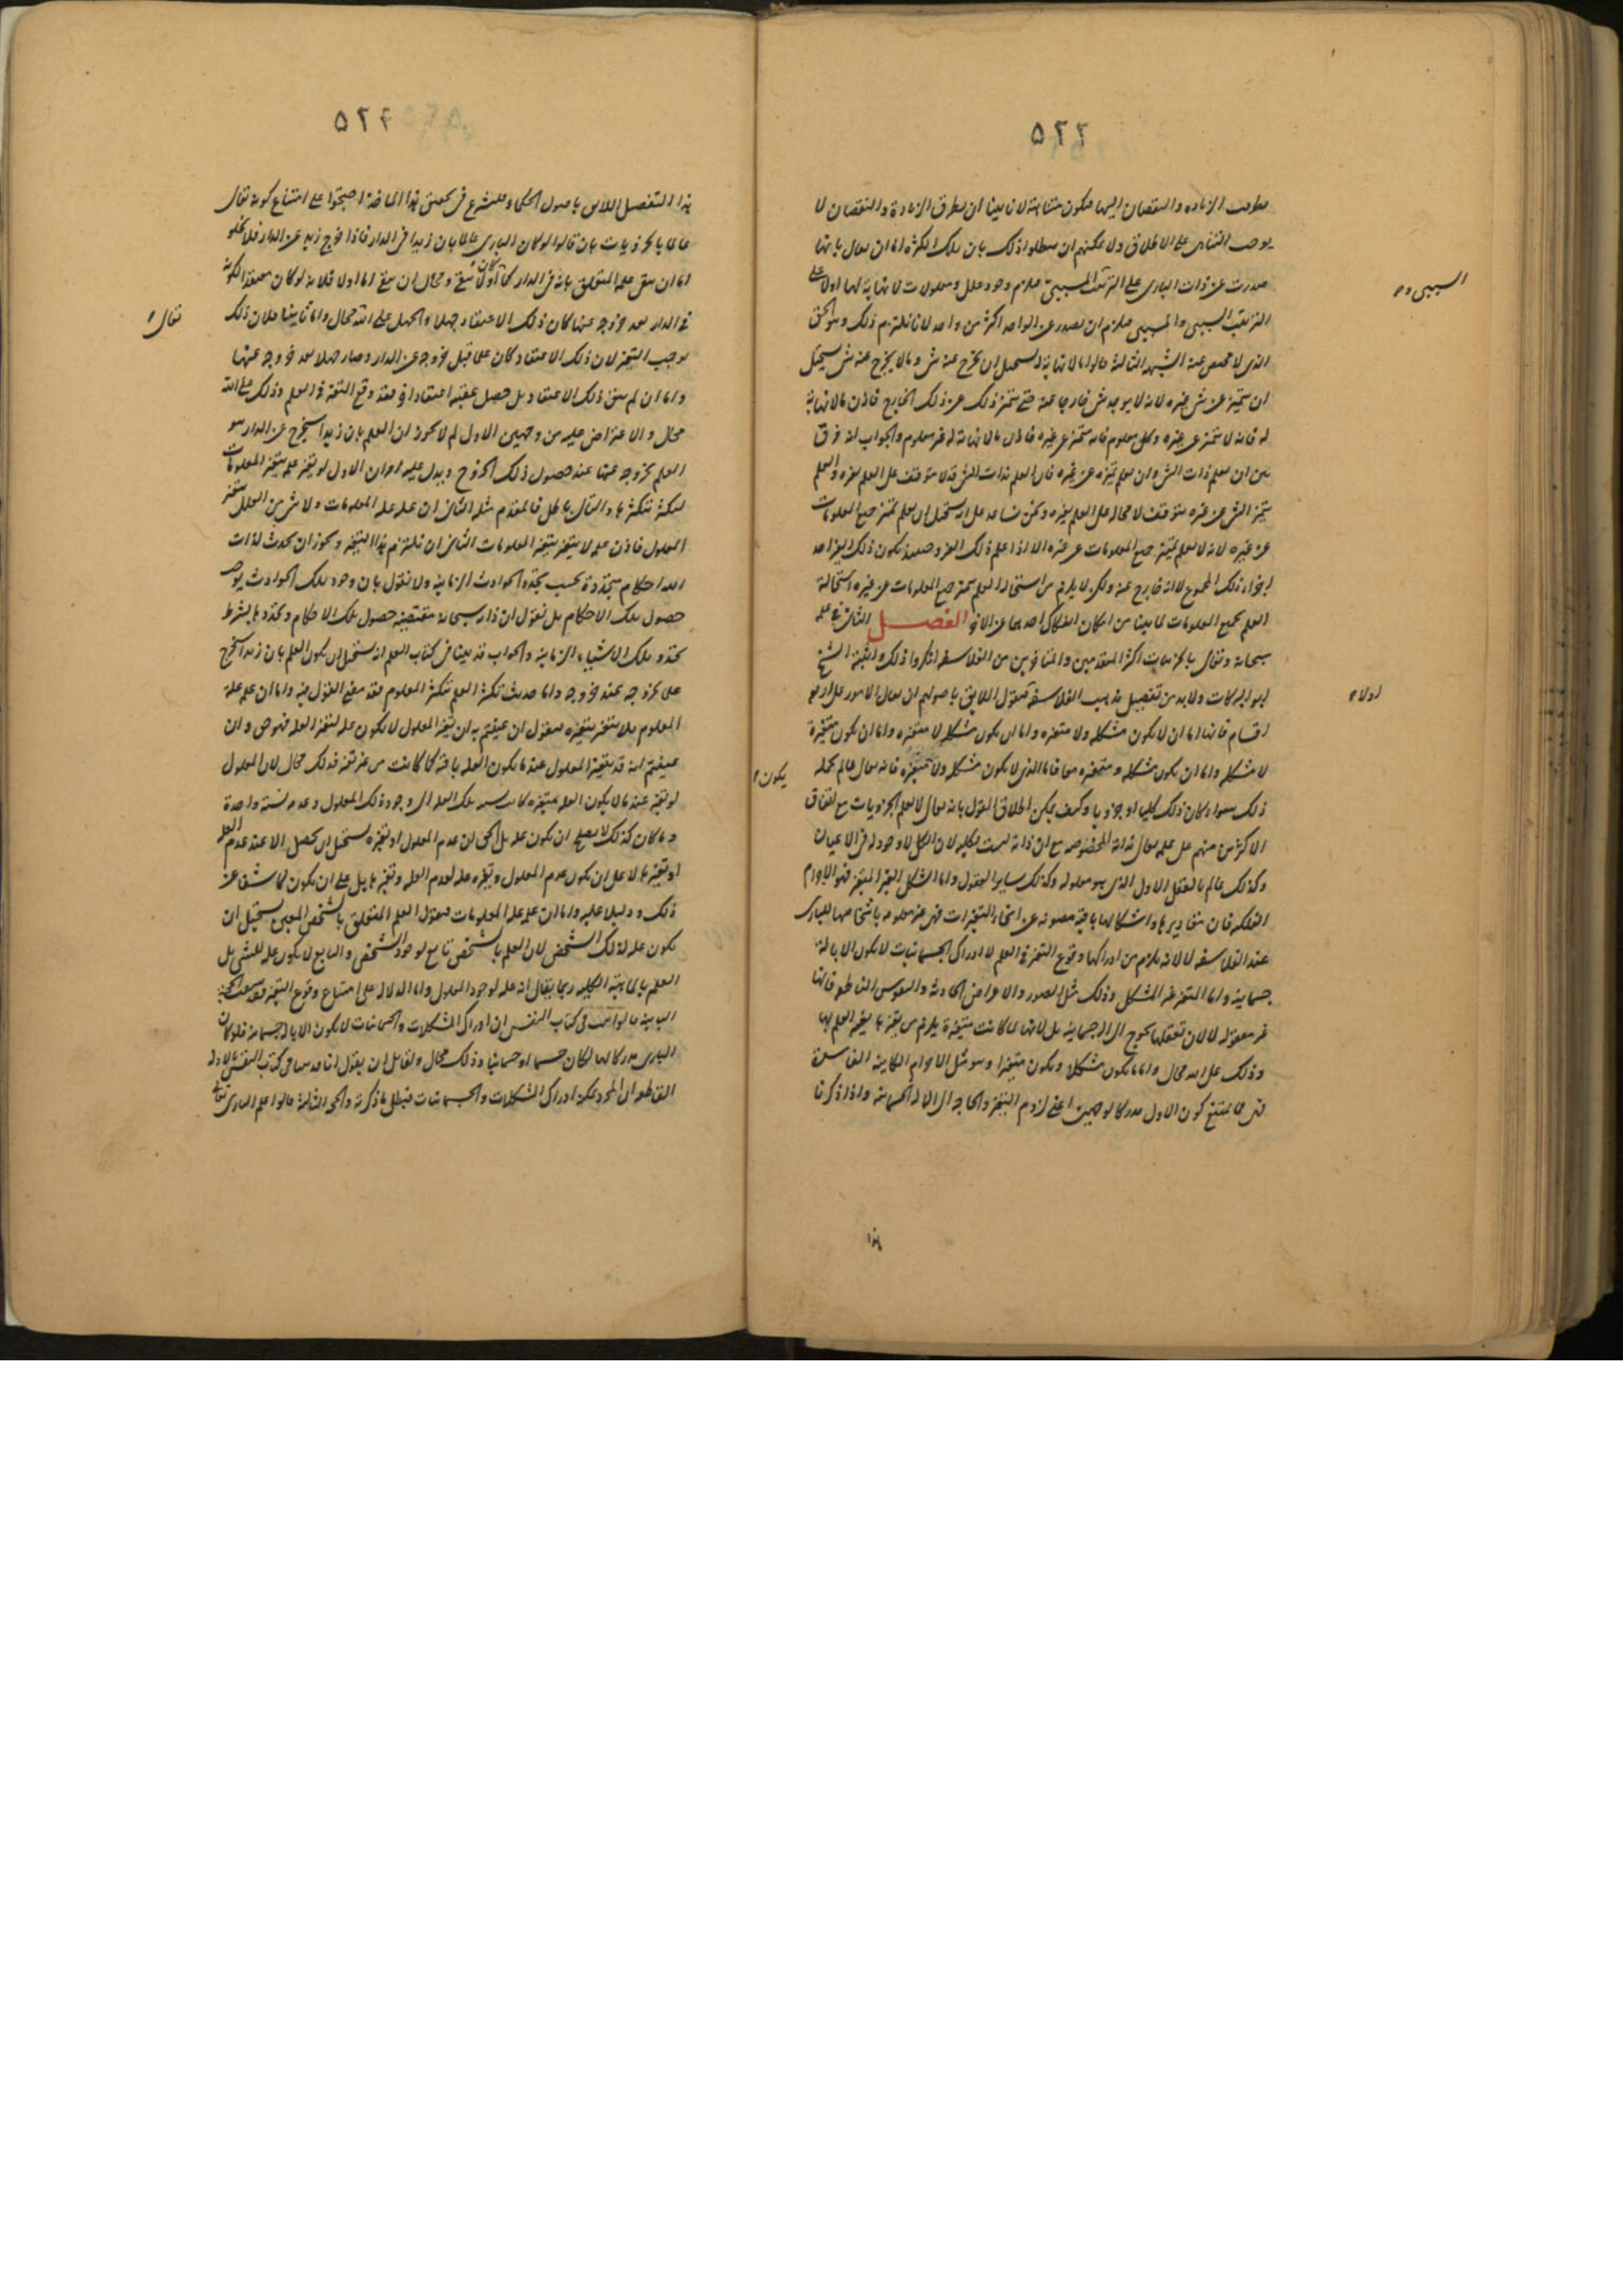 ٥٢٣
تطرقت الزيادة والنقصان اليها فيكون متناهية لانا بينا ان تطرق الزيادة والنقصان لا
يوجب التناهى على الاطلاق ولا يمكنهم ان يبطلوا ذلك بان تلك الكثرة اما ان يقال بانها
صدرت عن ذات البارى على الترتيب السببى فيلزم وجود علل ومعلولات لا نهاية لها اولا على
الترتيب السببى والمسببى فيلزم ان يصدر عن الواحد اكثر من واحد لانا نلتزم ذلك وهو الحق
الذى لا محيص عنه الشبهة الثالثة قالوا ما لا نهاية له يستحيل ان يخرج عنه شئ وما لا يخرج عنه شئ يستحيل
ان يتميز عن شئ غيره لانه لا يوجد شئ خارجا عنه حتى يتميز ذلك عن ذلك الخارج فاذن ما لا نهاية
له فانه لا يتميز عن غيره وكل معلوم فانه يتميز عن غيره فاذن ما لا نهاية له غير معلوم والجواب انه فرق
بين ان يعلم ذات الشئ وان يعلم تميزه عن غيره فان العلم بذات الشئ قد لا يتوقف على العلم بغيره والعلم
بتميز الشئ عن غيره يتوقف لا محالة على العلم بغيره ونحن نساعد على انه يستحيل ان يعلم تميز جميع المعلومات
عن غيره لانه لا يعلم تميز جميع المعلومات عن غيره الا اذا علم ذلك الغير وحينئذ يكون ذلك الغير احد
اجزاء ذلك المجموع لا انه خارج عنه ولكن لا يلزم من استحالة العلم بتميز جميع المعلومات عن غيره استحالة
العلم بجميع المعلومات لما بينا من امكان انفكاك احدهما عن الاخر الفصل الثانى فى علمه
سبحانه وتعالى بالجزئيات اكثر المتقدمين والمتاخرين من الفلاسفة انكروا ذلك واثبته الشيخ
ابو البركات ولا بد من تفصيل مذهب الفلاسفة فنقول اللايق باصولهم ان يقال الامور على اربعة
اقسام فانها اما ان لا يكون متشكلة ولا متغيرة واما ان يكون متشكلة لا متغيرة واما ان يكون متغيرة
لا متشكلة واما ان يكون متشكلة ومتغيرة معا فاما الذى لا يكون متشكلة ولا متغيرة فانه تعالى عالم بكله
ذلك سواء كان ذلك كليا او جزويا وكيف يمكن اطلاق القول بانه تعالى لا يعلم الجزويات مع اتفاق
الاكثر منهم على علمه تعالى بذاته المخصوصة مع ان ذاته ليست بكلية لان الكلى لا وجود له فى الاعيان
وكذلك عالم بالعقل الاول الذى هو معلوله وكذلك ساير العقول واما المتشكل الغير المتغير فهو الاجرام
الفلكية فان مقاديرها واشكالها باقية مصونة عن انحاء التغيرات فهى غير معلومة باشخاصها للبارى
عند الفلاسفة لا لانه يلزم من ادراكها وقوع التغير فى العلم لا ادراك الجسمانيات لا يكون الا بالة
جسمانية واما المتغير غير المتشكل وذلك مثل الصور والاعراض الحادثة والنفوس الناطقة فانها
غير معقولة لا لان تعقلها يحوج الى الة جسمانية بل لانها لما كانت متغيرة يلزم من تغيرها تغير العلم بها
وذلك على الله محال واما ما يكون متشكلا ويكون متغيرا وهو مثل الاجرام الكاينة الفاسدة
فهى مما يمتنع كون الاول مدركا لوجهين اعنى لزوم التغير والحاجة الى الالة الجسمانية واذا ذكرنا
السببى و ه
اولا ه
يكون ه
هذا
٥٢٤
هذا التفصيل اللايق باصول الحكماء فلنشرع فى تحصيل هذا الماخذ احتجوا على امتناع كونه تعالى
عالما بالجزويات بان قالوا لو كان البارى عالما بان زيدا فى الدار فاذا خرج زيد عن الدار فلا يخلو
اما ان يبقى علمه المتعلق بانه فى الدار كما كان اولا يبقى ومحال ان يبقى اما اولا فلانه لو كان معتقدا لكونه
فى الدار بعد خروجه عنها كان ذلك الاعتقاد جهلا والجهل على الله محال واما ثانيا فلان ذلك
يوجب التغير لان ذلك الاعتقاد كان علما قبل خروجه عن الدار وصار جهلا بعد خروجه عنها
واما ان لم يبق ذلك الاعتقاد بل حصل عقيبه اعتقاد اخر فقد وقع التغير فى العلم وذلك على الله
محال والاعتراض عليه من وجهين الاول لم لا يجوز ان العلم بان زيدا سيخرج عن الدار هو
العلم بخروجه عنها عند حصول ذلك الخروج ويدل عليه امران الاول لو تغير علمه بتغير المعلومات
لتكثر بتكثرها والتالى باطل فالمقدم مثله الثانى ان علمه علة المعلومات ولا شئ من العلل يتغير
المعلول فاذن علمه لا يتغير بتغير المعلومات الثانى ان نلتزم هذا التغير ويجوز ان يحدث لذات
الله احكام متجددة بحسب تجدد الحوادث الزمانية ولا نقول بان وجود تلك الحوادث يوجب
حصول تلك الاحكام بل نقول ان ذاته سبحانه مقتضية حصول تلك الاحكام وتجددها بشرط
تجدد تلك الاشياء الزمانية والجواب قد بينا فى كتاب العلم انه يستحيل ان يكون العلم بان زيدا سيخرج
علما بخروجه عند خروجه واما حديث تكثر العلم بتكثر المعلوم فقد مضى القول فيه واما ان علمه علة
المعلوم فلا يتغير بتغيره فنقول ان عنيتم به ان تغير المعلول لا يكون علة لتغير العلة فهو حق وان
عنيتم انه قد يتغير المعلول عند ما يكون العلة باقية كما كانت من غير تغير فذلك محال لان المعلول
لو تغير عند ما لا يكون العلة متغيرة كانت نسبة تلك العلة الى وجود ذلك المعلول وعدمه نسبة واحدة
وما كان كذلك لا يصلح ان يكون علة بل الحق ان عدم المعلول او تغيره يستحيل ان يحصل الا عند عدم العلة
او تغيرها لا على ان يكون عدم المعلول وتغيره علة لعدم العلة وتغيرها بل على ان يكون كاشفا عن
ذلك ودليلا عليه واما ان علمه علة المعلومات فنقول العلم المتعلق بالشخص المعين يستحيل ان
يكون علة لذلك الشخص لان العلم بالشخص تابع لوجود الشخص والتابع لا يكون علة للشئ بل
العلم بالماهية الكلية ربما يقال انه علة لوجود المعلول واما الدلالة على امتناع وقوع التغير فقد سبقت الحجة
الثانية قالوا ثبت فى كتاب النفس ان ادراك المتشكلات والجسمانيات لا يكون الا بالة جسمانية فلو كان
البارى مدركا لها لكان جسما او جسمانيا وذلك محال ولقائل ان يقول انا قد بينا فى كتاب النفس بالادلة
القاطعة ان المجرد يمكنه ادراك المتشكلات والجسمانيات فبطل ما ذكرته والحجة الثالثة قالوا علم البارى تعالى
تعالى ه